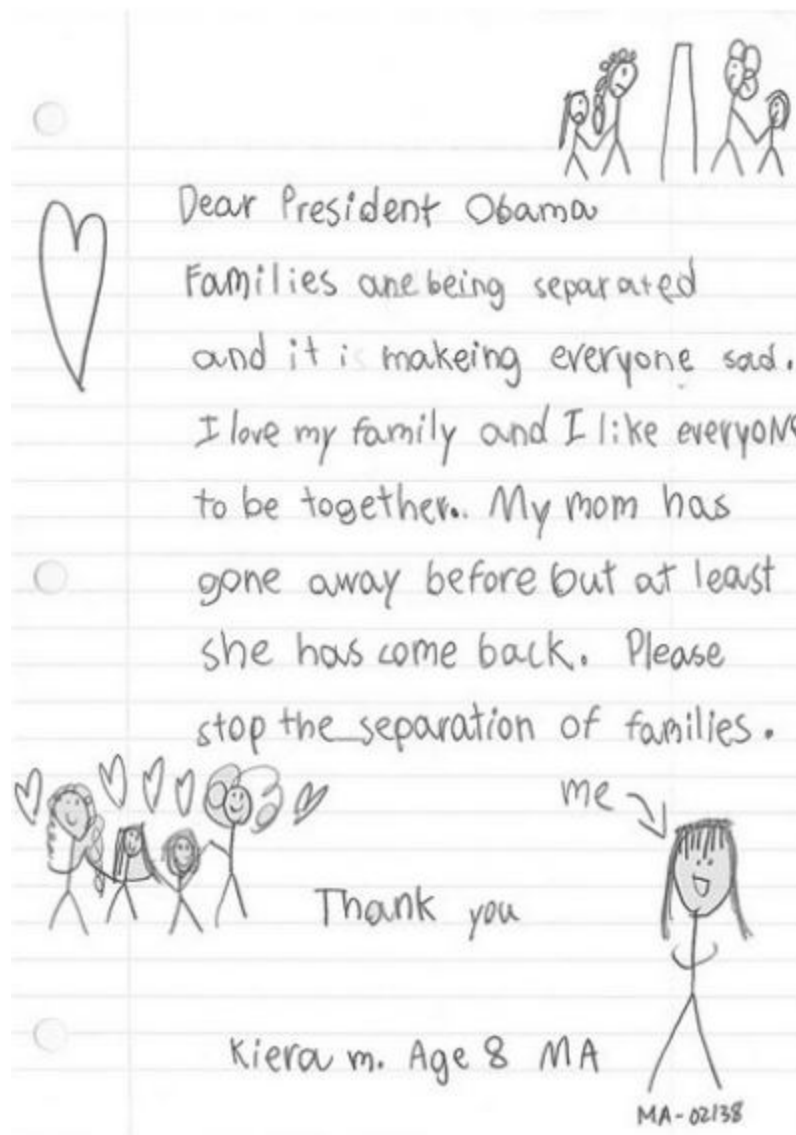 Dear President Obama
Families are being separated
and it is makeing everyone sad.
I love my family and I like everyone
to be together. My mom has
gone away before but at least
she has come back. Please
stop the separation of families.
me
Thank you
Kiera m. Age 8 MA
MA-02138